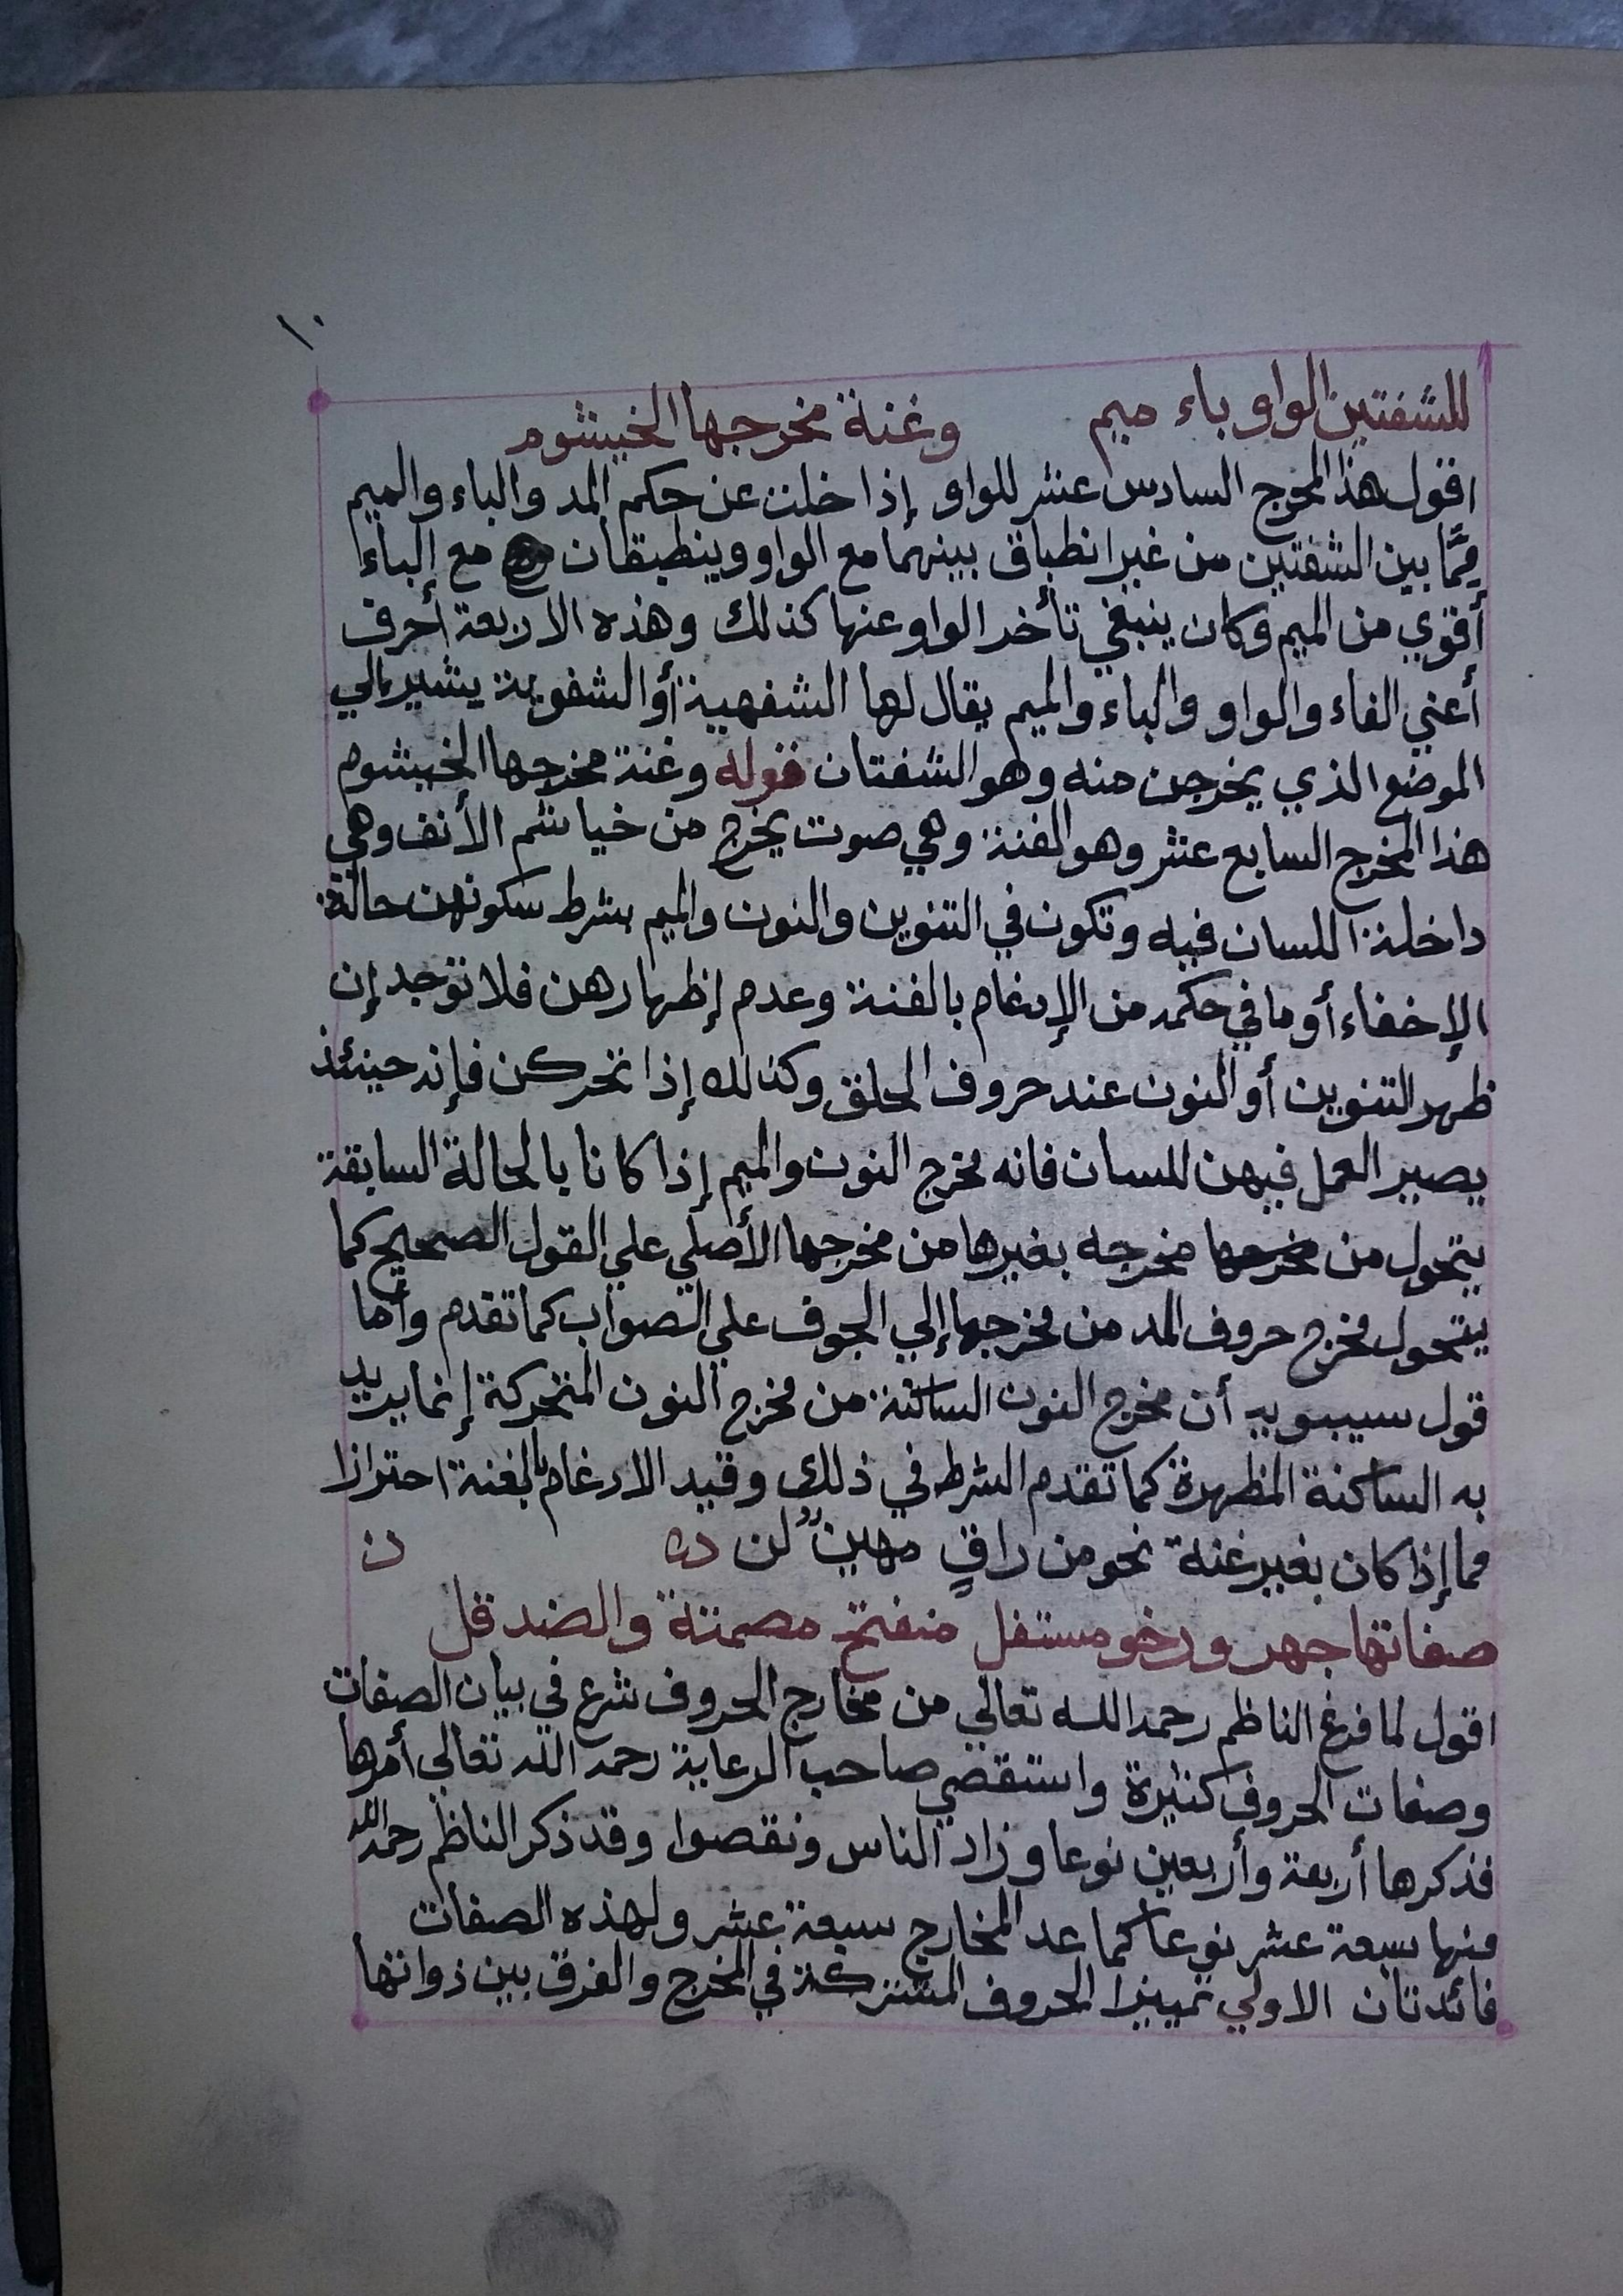 ١٠
للشفتين الواو باء ميم وغنة مخرجها الخيشوم
اقول هذا المخرج السادس عشر للواو إذا خلت عن حكم المد والباء والميم
مِمَّا بين الشفتين من غير انطباق بينهما مع الواو وينطبقان مع الباء
أقوي من الميم وكان ينبغي تأخر الواو عنها كذلك وهذه الاربعة أحرف
أعني الفاء والواو والباء والميم يقال لها الشفهية أو الشفوية يشير إلي
الموضع الذي يخرجن منه وهو الشفتان قوله وغنة مخرجها الخيشوم
هذا المخرج السابع عشر وهو الغنة وهي صوت يخرج من خياشم الأنف وهي
داخلة اللسان فيه وتكون في التنوين والنون والميم بشرط سكونهن حالة
الإخفاء أو ما في حكمه من الإدغام بالغنة وعدم إظهارهن فلا توجد إن
ظهر التنوين أو النون عند حروف الحلق وكذلك إذا تحركن فإنه حينئذ
يصير العمل فيهن للسان فانه مخرج النون والميم إذا كانا بالحالة السابقة
يتحول من مخرجه بغيرها من مخرجها الأصلي علي القول الصحيح كما
يتحول مخرج حروف المد من مخرجها إلي الجوف علي الصواب كما تقدم وأما
قول سيبويه أن مخرج النون الساكنة من مخرج النون المتحركة إنما يريد
به الساكنة المظهرة كما تقدم الشرط في ذلك وقيد الادغام بالغنة احترازا
مما إذا كان بغير غنة نحو من راقٍ مهين لن ن
صفاتها جهر ورخو مستفل منفتح مصمتة والضد قل
اقول لما فرغ الناظم رحمه الله تعالي من مخارج الحروف شرع في بيان الصفات
وصفات الحروف كثيرة واستقصي صاحب الرعاية رحمه الله تعالي أمرها
فذكرها أربعة وأربعين نوعا وزاد الناس ونقصوا وقد ذكر الناظم رحمه الله
منها سبعة عشر نوعا كما عد المخارج سبعة عشر ولهذه الصفات
فائدتان الاولي تمييز الحروف المشتركة في المخرج والفرق بين ذواتها